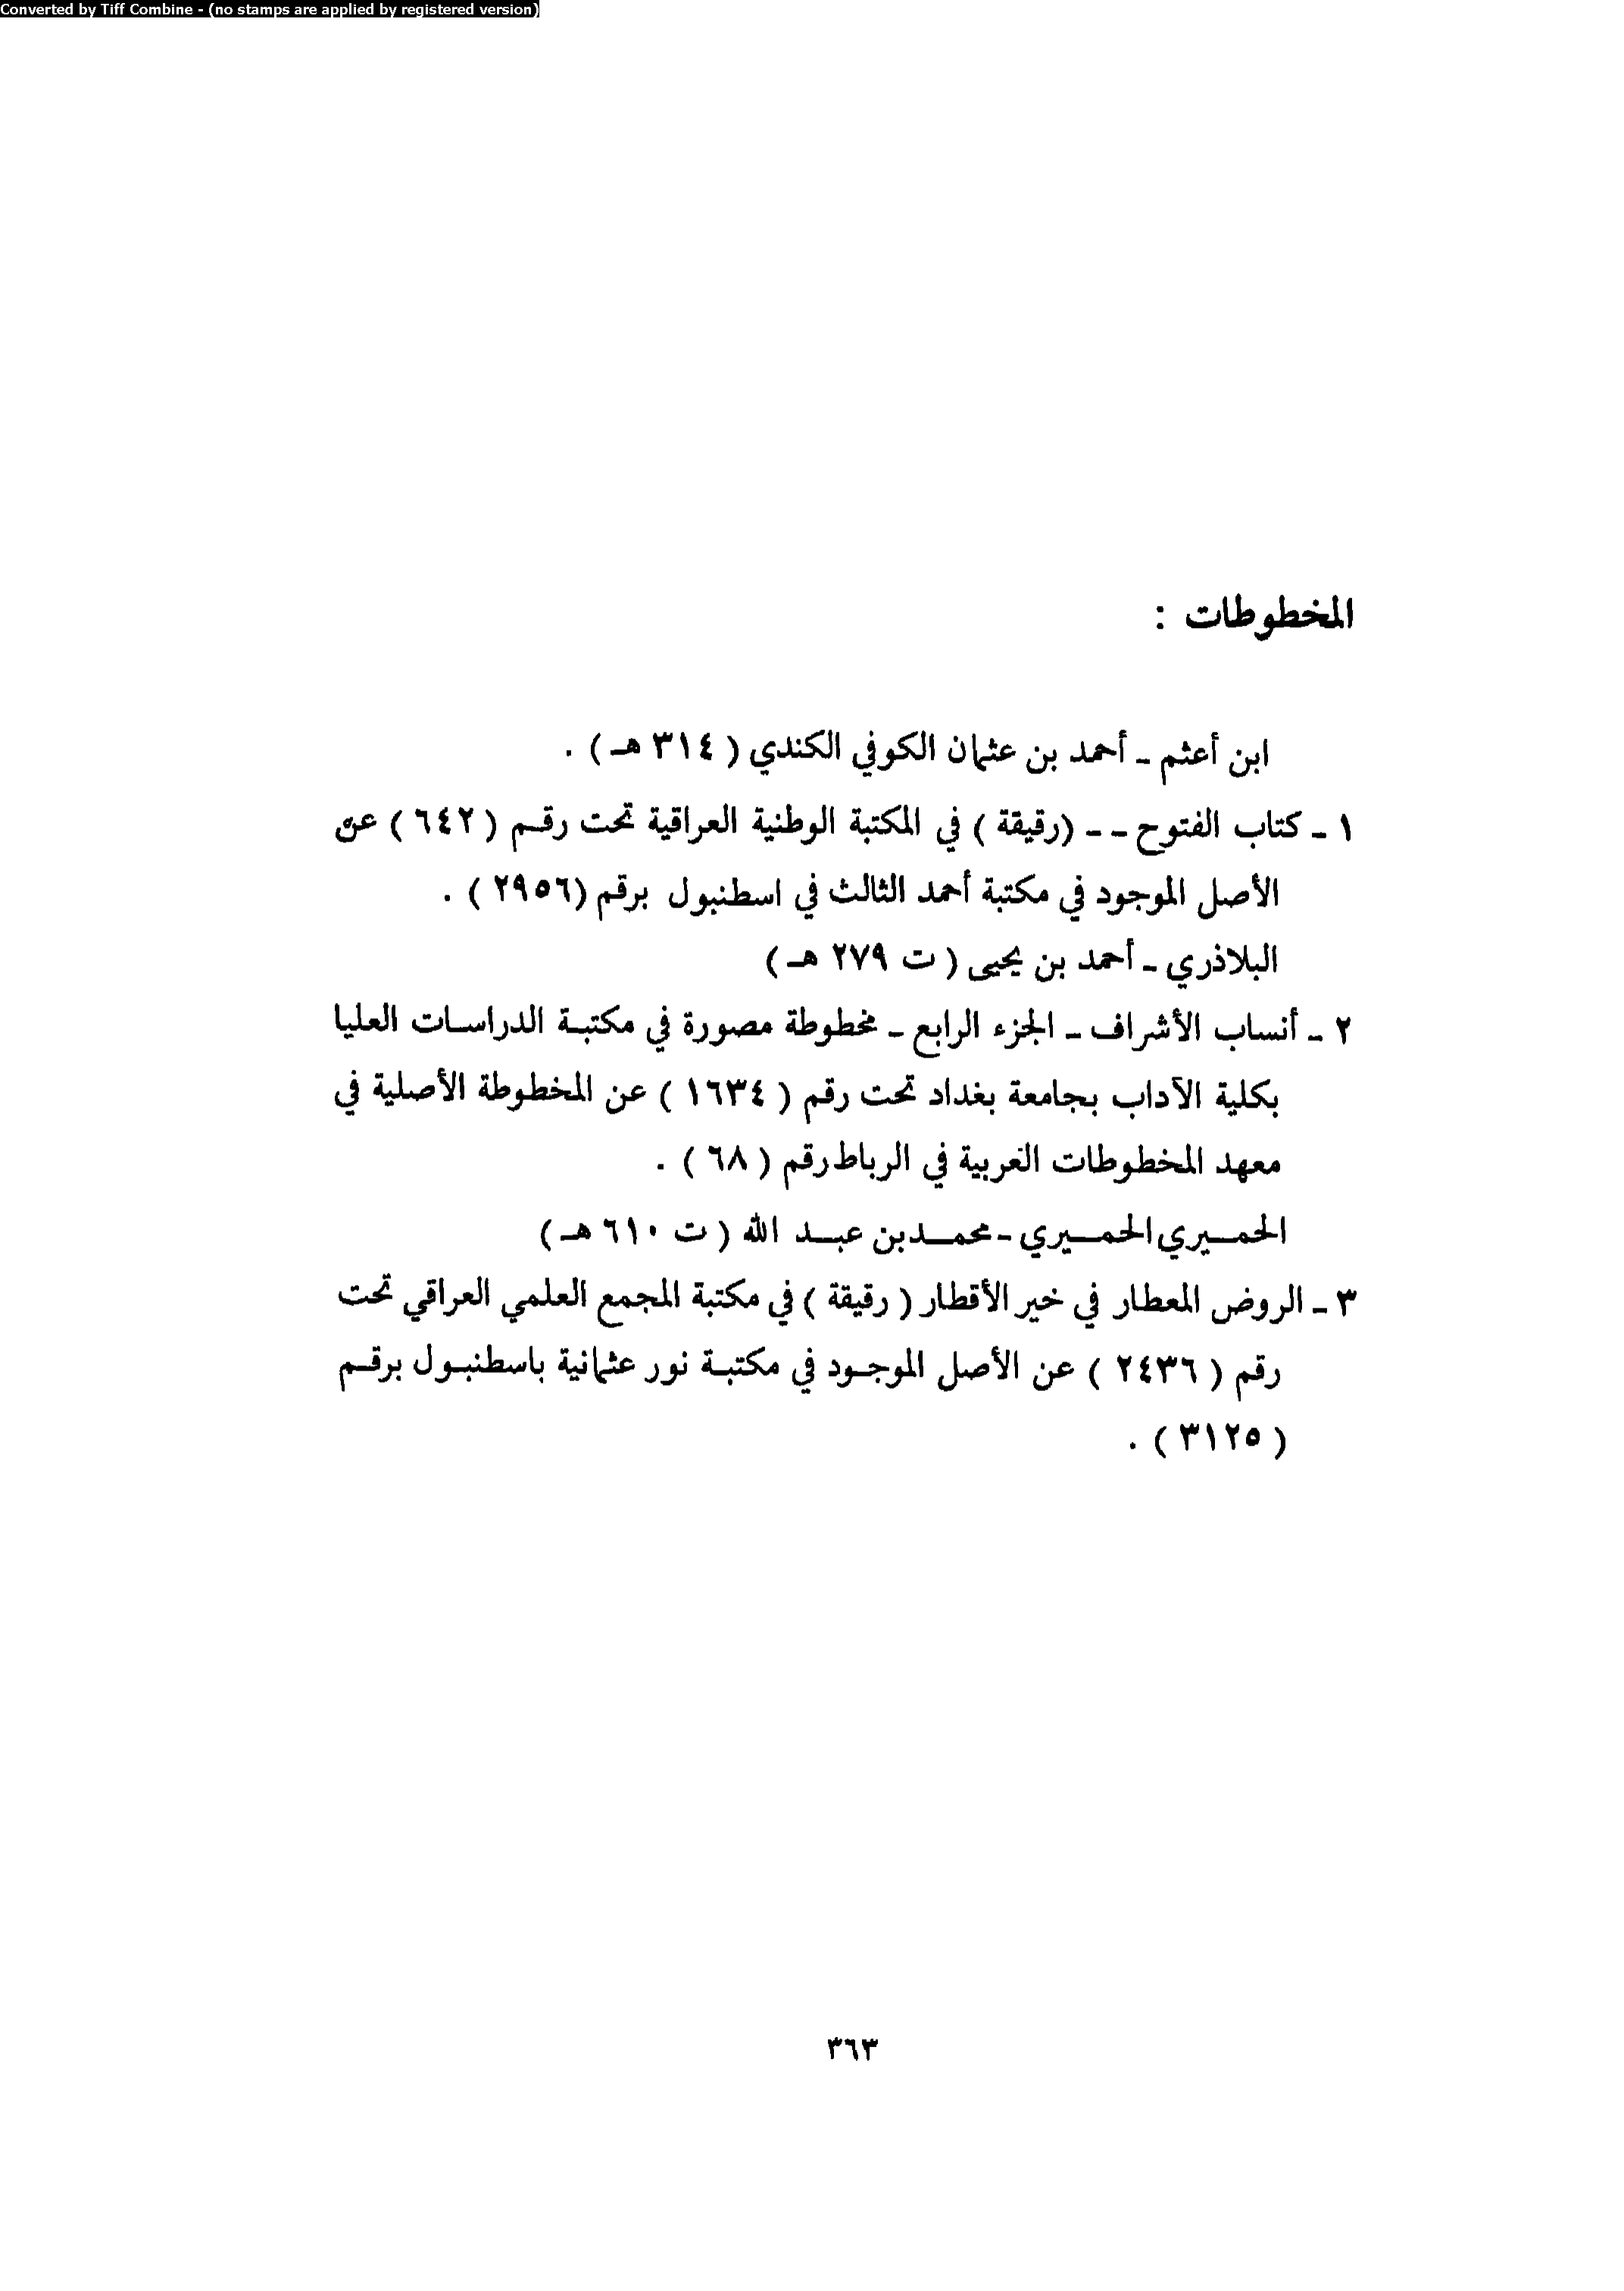 Converted by Tiff Combine - (no stamps are applied by registered version)
المخطوطات :
ابن أعثم ـ أحمد بن عثمان الكوفي الكندي ( ٣١٤ هـ ) .
١ ـ كتاب الفتوح ـ ـ (رقيقة ) في المكتبة الوطنية العراقية تحت رقم ( ٦٤٢ ) عن
الأصل الموجود في مكتبة أحمد الثالث في اسطنبول برقم (٢٩٥٦ ) .
البلاذري ـ أحمد بن يحيى ( ت ٢٧٩ هـ )
٢ ـ أنساب الأشراف ـ الجزء الرابع ـ مخطوطة مصورة في مكتبة الدراسات العليا
بكلية الآداب بجامعة بغداد تحت رقم ( ١٦٣٤ ) عن المخطوطة الأصلية في
معهد المخطوطات الغربية في الرباط رقم ( ٦٨ ) .
الحميري الحميري - محمد بن عبد الله ( ت ٦١٠ هـ )
٣ ـ الروض المعطار في خير الأقطار ( رقيقة ) في مكتبة المجمع العلمي العراقي تحت
رقم ( ٢٤٣٦ ) عن الأصل الموجود في مكتبة نور عثمانية باسطنبول برقم
( ٣١٢٥ ) .
٣٦٣